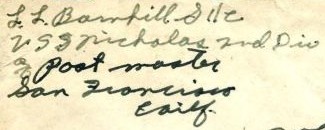 L. L. Barnhill S 1/c
U S S Nicholas 2nd Div
% Post master
San Francisco
Calif.